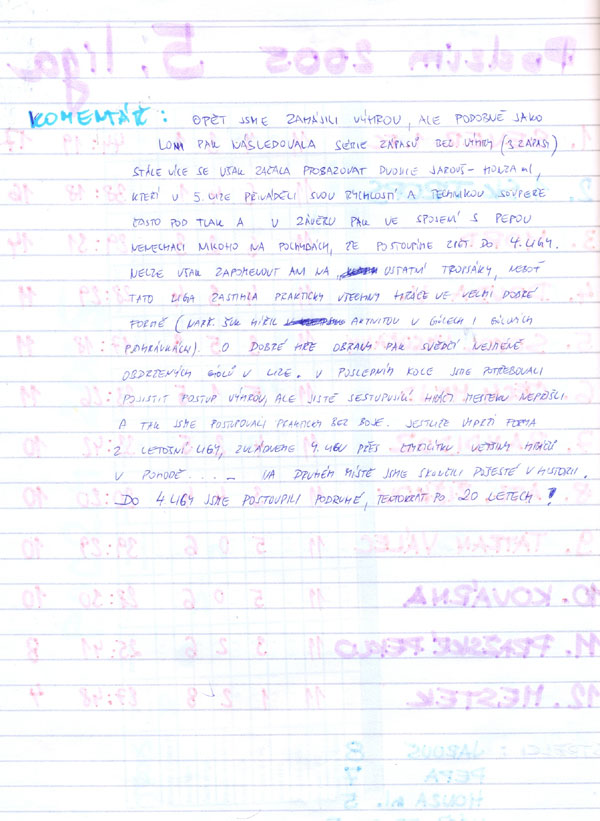 KOMENTÁŘ: OPĚT JSME ZAHÁJILI VÝHROU, ALE PODOBNĚ JAKO
LONI PAK NÁSLEDOVALA SÉRIE ZÁPASŮ BEZ VÝHRY (3 ZÁPASY)
STÁLE VÍCE SE VŠAK ZAČALA PROSAZOVAT DVOJICE JABOUŠ - HONZA ml,
KTEŘÍ V 5. LIZE PŘIVÁDĚLI SVOU RYCHLOSTÍ A TECHNIKOU SOUPEŘE
ČASTO POD TLAK A V ZÁVĚRU PAK VE SPOJENÍ S PEPOU
NENECHALI NIKOHO NA POCHYBÁCH, ŽE POSTOUPÍME OPĚT DO 4. LIGY.
NELZE VŠAK ZAPOMENOUT ANI NA OSTATNÍ TROPSÁKY, NEBOŤ
TATO LIGA ZASTIHLA PRAKTICKY VŠECHNY HRÁČE VE VELMI DOBRÉ
FORMĚ (NAPŘ. AKTIVITOU V GÓLECH I GÓLOVÝCH
PŘIHRÁVKÁCH). O DOBRÉ HŘE OBRANY PAK SVĚDČÍ NEJMÉNĚ
OBDRŽENÝCH GÓLŮ V LIZE. V POSLEDNÍM KOLE JSME POTŘEBOVALI
POJISTIT POSTUP VÝHROU, ALE JISTĚ SESTUPUJÍCÍ HRÁČI HESTEKU NEPŘIŠLI
A TAK JSME POSTUPOVALI PRAKTICKY BEZ BOJE. JESTLIŽE VYDRŽÍ FORMA
Z LETOŠNÍ LIGY, ZVLÁDNEME 4. LIGU PŘES VĚTŠINY HRÁČŮ
V POHODĚ . . . . NA DRUHÉM MÍSTĚ JSME SKONČILI POJESTÉ V HISTORII.
DO 4. LIGY JSME POSTOUPILI PODRUHÉ, TENTOKRÁT PO 20 LETECH!